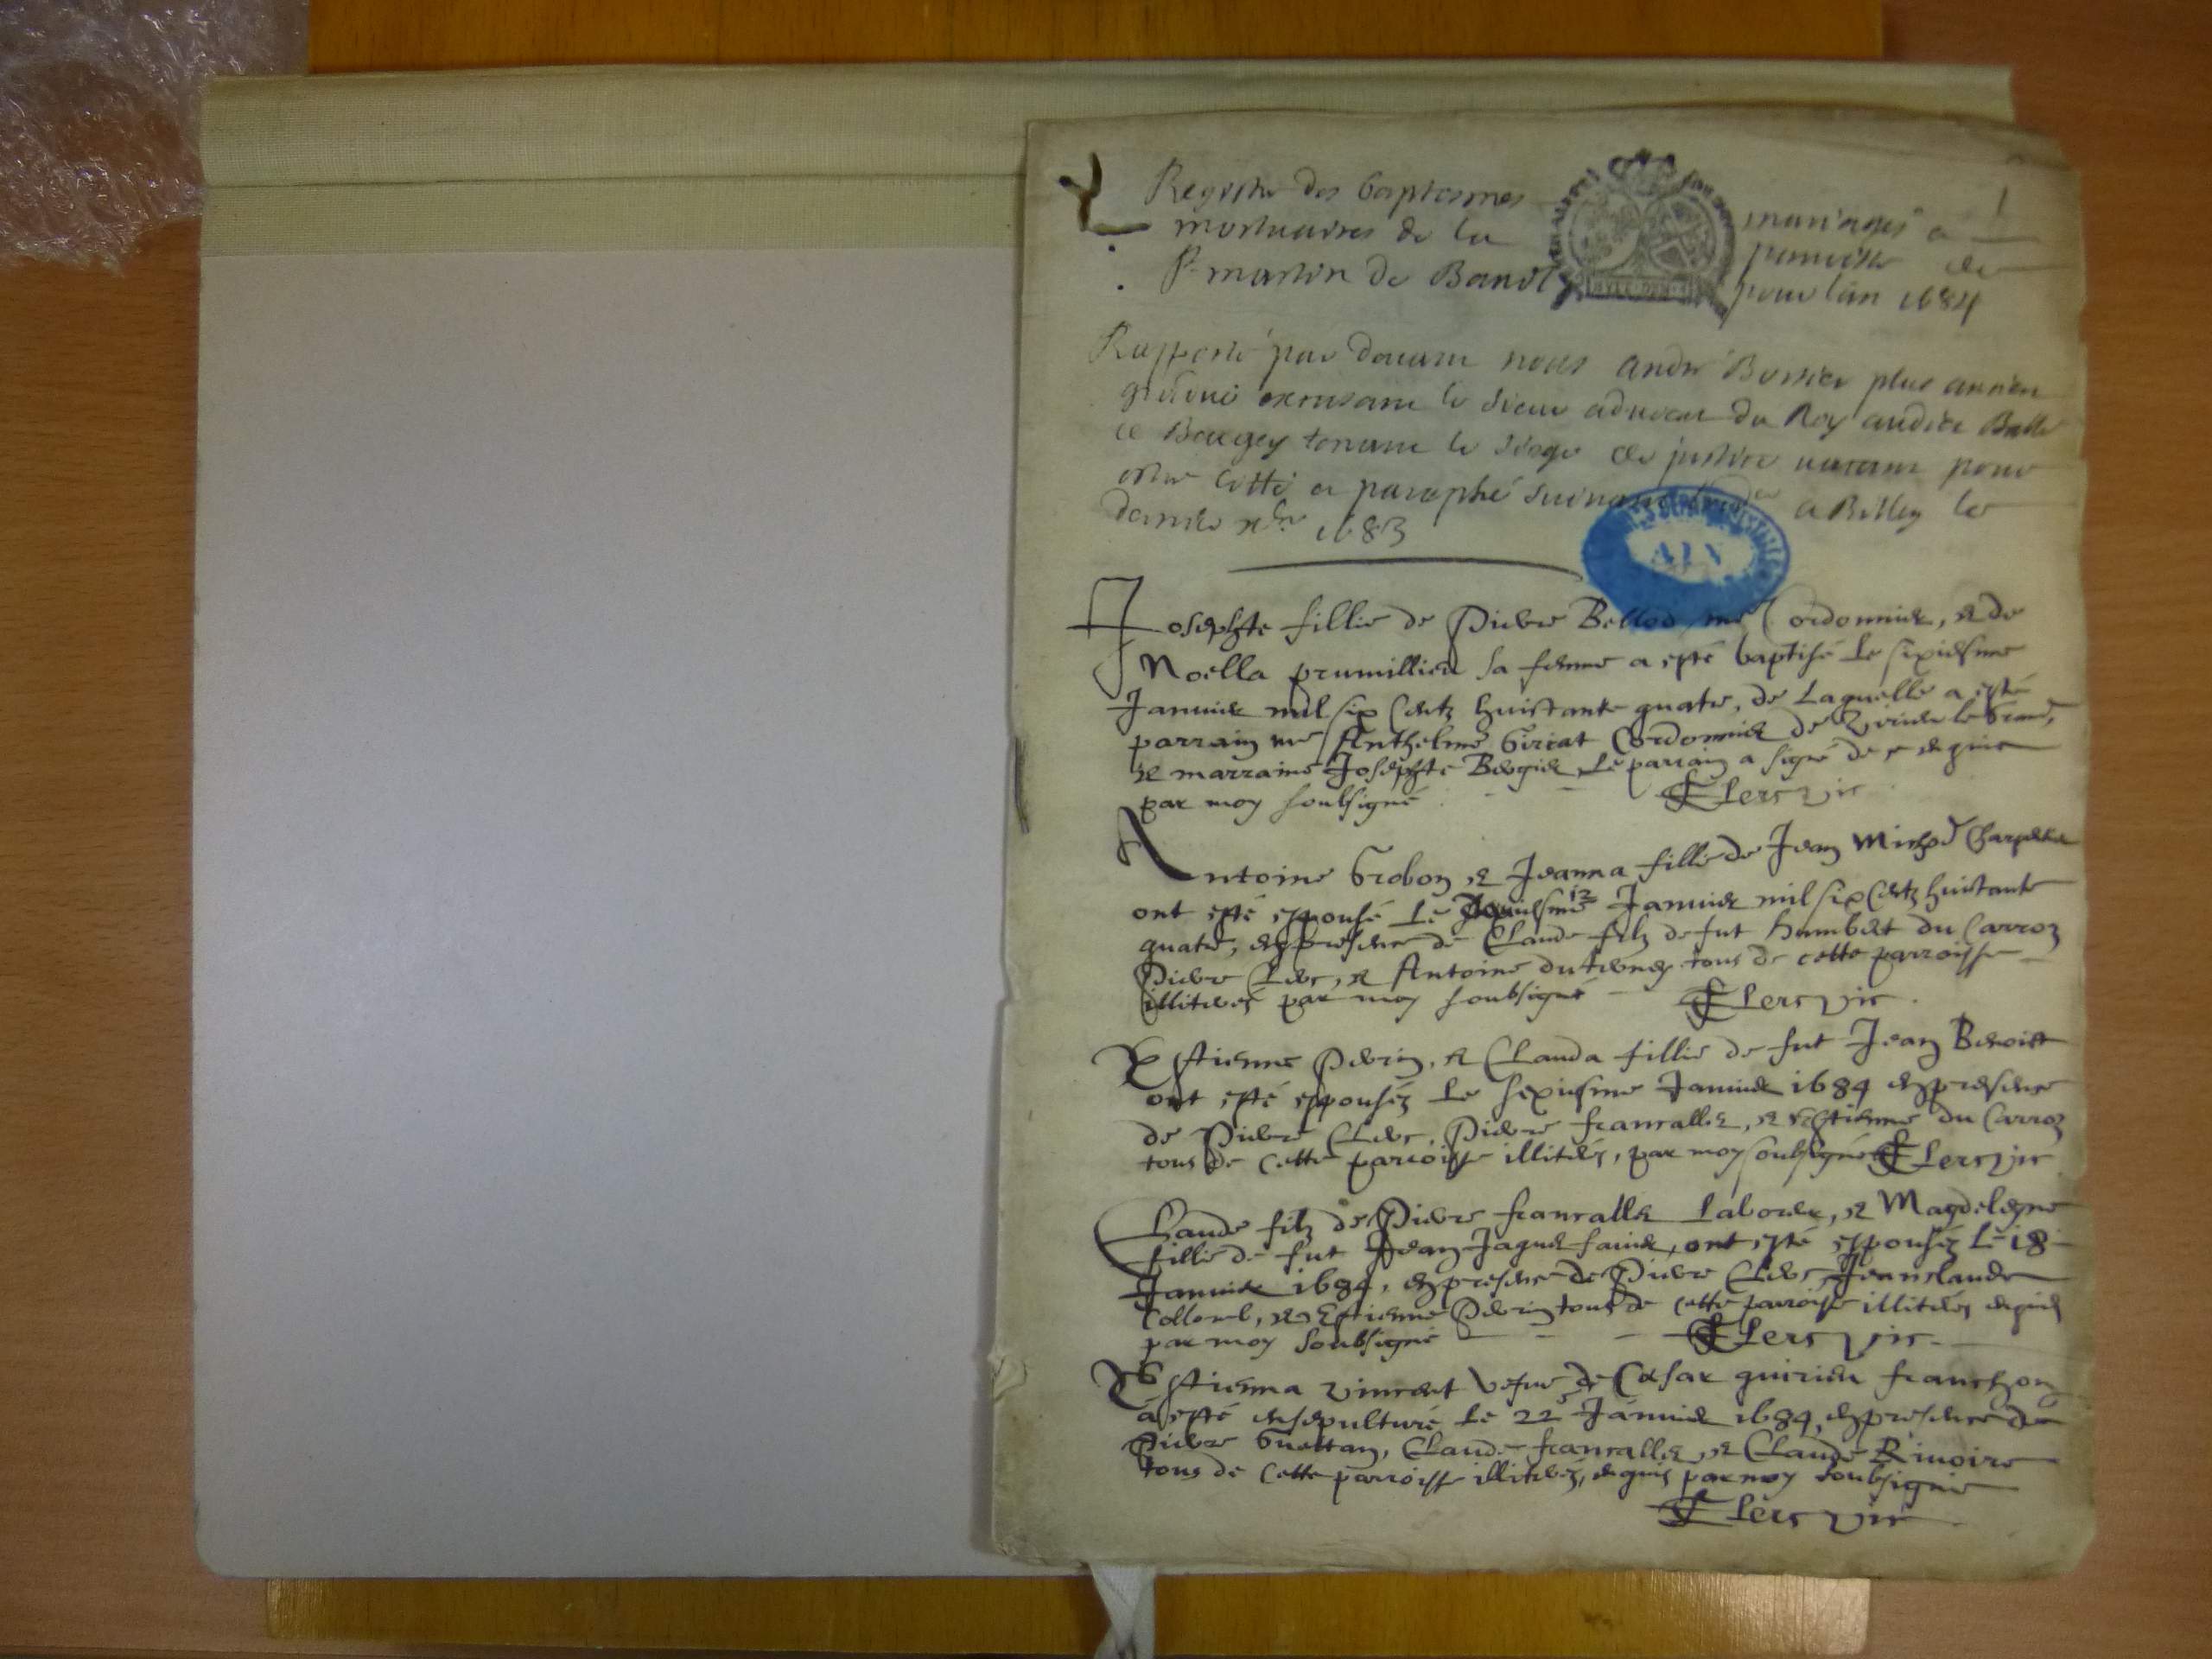 1
Registre des baptesmes mariages e
mortuaires de la paroisse de
St martin de Bavos pour lan 1684
Rapporté par devant nous André Bossier plus ancien
gradué excusant le sieur advocat du Roy au dict Balle
de Bougey tenant le siege de justice vacant pour
estre cotté et paraphé suivant a Belley le
dernier xbre 1683
AIN
Josephte fillie de Pierre Bellod me Cordonnier, et de
Noella prumillieu sa femme a esté baptisé le sixiesme
Januier mil six Centz huictante quatre, de laquelle a esté
parrain me Anthelme Girat Cordonnier de Virieu le Grand,
et marraine Josephte Bergier le parrain a signé de ce enquis
par moy soubsigné Clerc vic
Antoine Grobon et Jeanna fillie de Jean Michod Charpetier
ont esté espousé Le 12 Januier mil six Centz huictante
quatre, en presence de Claude filz de fut Humbert du Carroz
Pierre Clerc, et Antoine dutreney tous de cette parroisse
illiterés par moy soubsigné Clerc vic.
Estienne Perrin, et Clauda fillie de fut Jean Benoist
ont esté espouséz Le sexiesme Januier 1684 en presence
de Pierre Clerc, Pierre francallet, et Estienne du Carroz
tous de cette parroisse illiterés, par moy soubsigné Clerc vic
Claude filz de Pierre francallet Laborer, et Magdelegne
fillie de fut Jean Jaques favier, ont esté espouséz le 18
Januier 1684, en presence de Pierre Clerc, Jean claude
Collomb, et Estienne Perrin tous de cette parroisse illiterés enquis
par moy soubsigné Clerc vic.
Estienna vincent vefue de Cæsar quirieu franchon
a esté ensepulturé le 22 Januier 1684, en presence de
Pierre Guettan, Claude francallet, et Claude Rivoire
tous de cette parroisse illiterés, enquis par moy soubsigné
Clerc vic